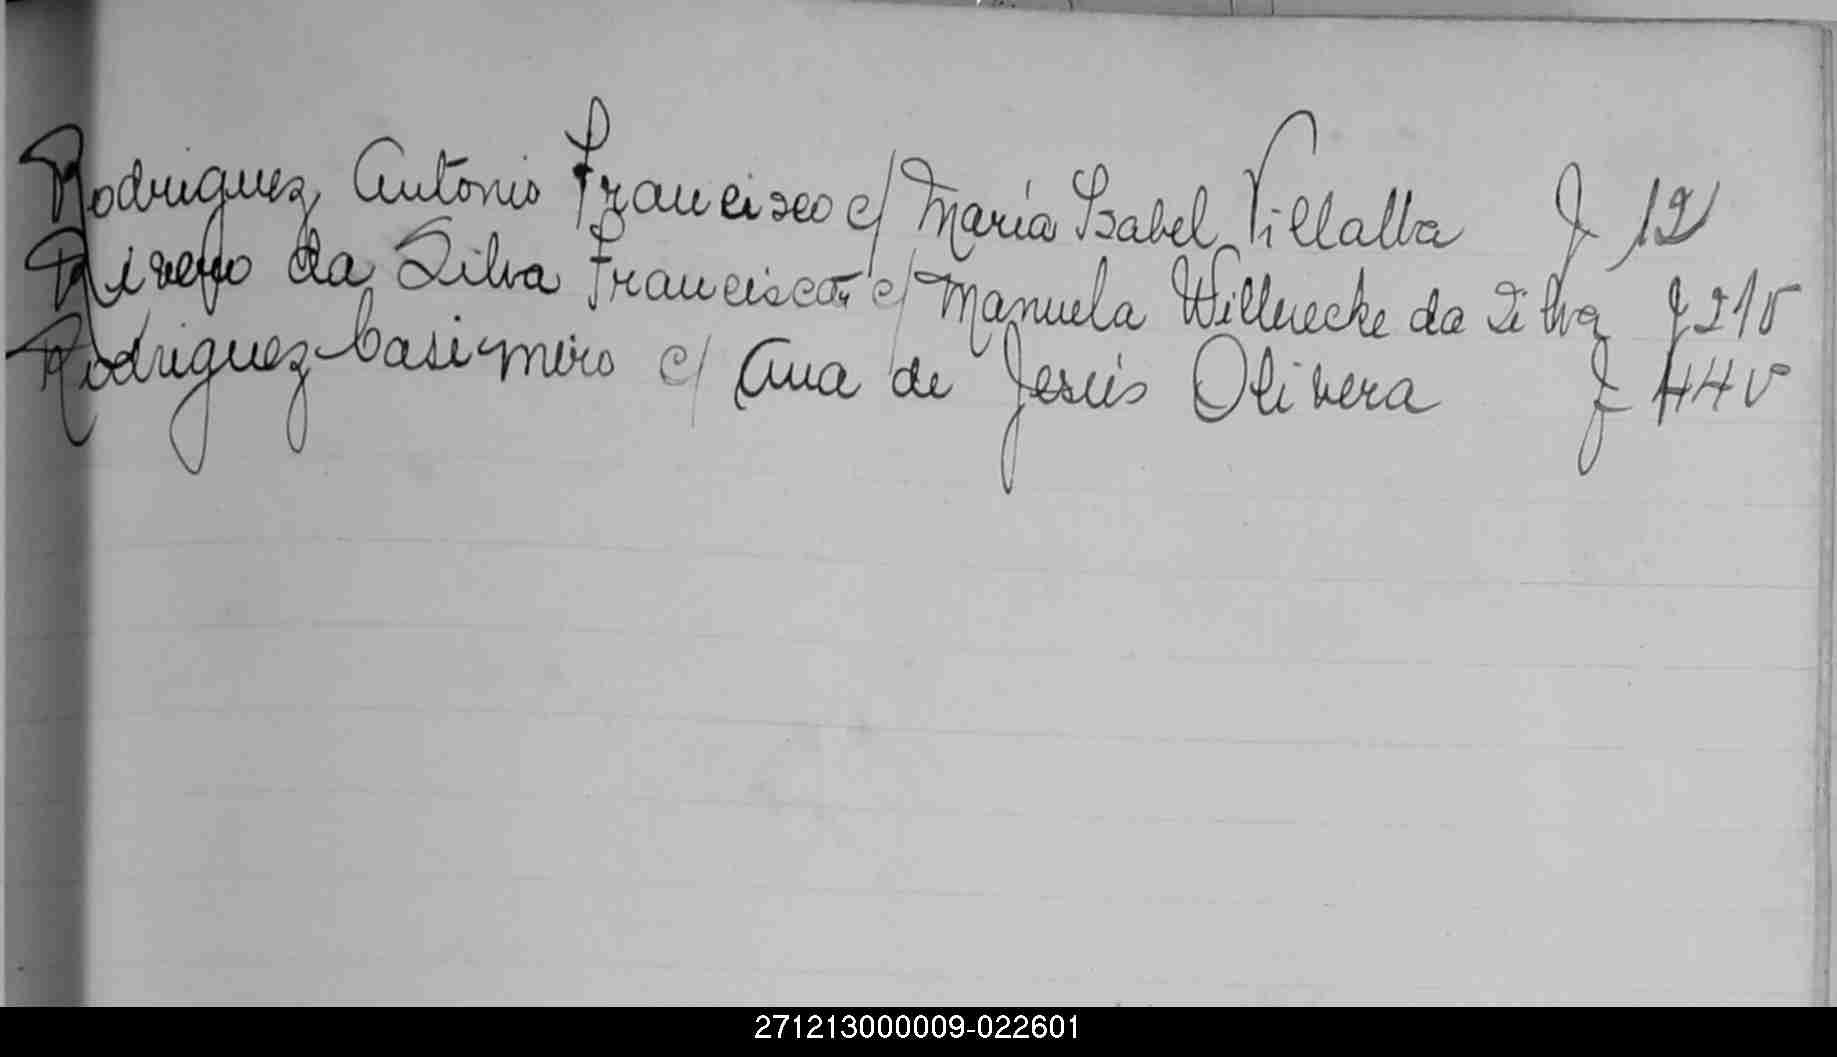 Rodriguez Antonio Francisco c/ María Isabel Villalba f 12
da Silva Francisco c/ Manuela da Silva f 21v
Rodriguez Casimiro c/ Ana de Jesús Olivera f 44v
271213000009-022601